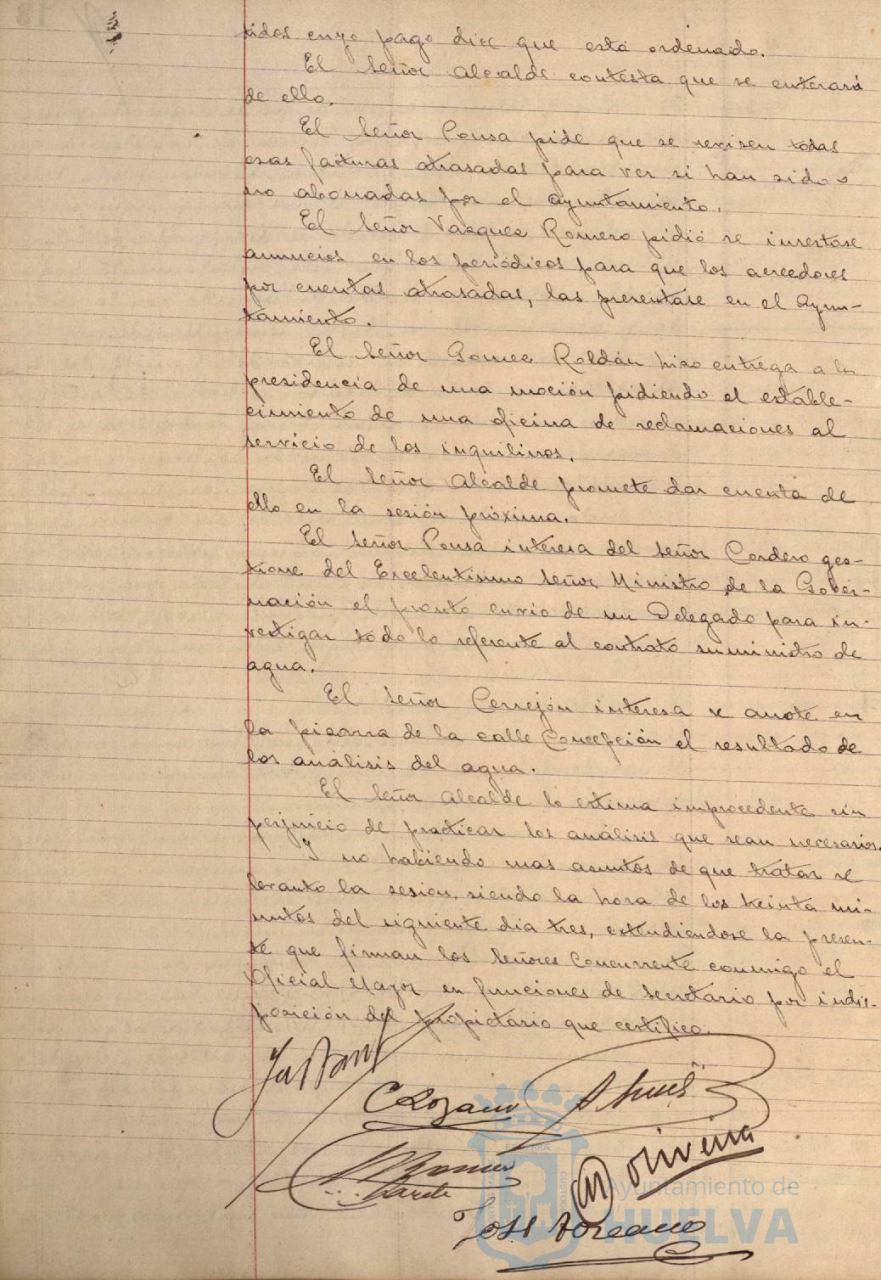 pidos cuyo pago dice que está ordenado.
El Señor Alcalde contesta que se enterará
de ello.
El Señor Ponsa pide que se revisen todas
esas facturas atrasadas para ver si han sido o
no abonadas por el Ayuntamiento.
El Señor Vazquez Romero pidió se insertase
anuncios en los periódicos para que los acreedores
por cuentas atrasadas, las presentase en el Ayun-
tamiento.
El Señor Gomez Roldán hizo entrega a la
presidencia de una moción pidiendo el estable-
cimiento de una oficina de reclamaciones al
servicio de los inquilinos.
El Señor Alcalde promete dar cuenta de
ello en la sesión próxima.
El Señor Ponsa interesa del Señor Cordero ges-
tione del Excelentisimo Señor Ministro de la Gober-
nación el pronto envio de un Delegado para in-
vestigar todo lo referente al contrato suministro de
agua.
El Señor Cerrejón interesa se anote en
la pizarra de la calle Concepción el resultado de
los análisis del agua.
El Señor Alcalde lo estima improcedente sin
perjuicio de practicar los análisis que sean necesarios.
Y no habiendo mas asuntos de que tratar se
levanto la sesion, siendo la hora de los treinta mi-
nutos del siguiente dia tres, extendiendose la presen-
te que firman los Señores Concurrente conmigo el
Oficial Mayor en funciones de Secretario por indis-
posición del propietario que certifico.
C Lozano
Oliveira
José Soreano
Ayuntamiento de
HUELVA